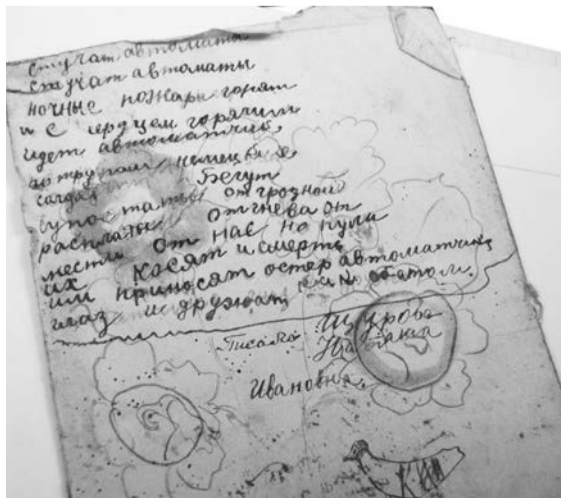 стучат автоматы
стучат автоматы
ночные пожары горят
и с сердцем горячим
идет автоматчик
по трупам немецких
солдат Бегут
супостаты от грозной
расплаты от гнева от
мести от нас но пули
их косят и смерть
им приносят остер автоматчика
глаз и дружат
Писала Щурова
Наташа
Ивановна